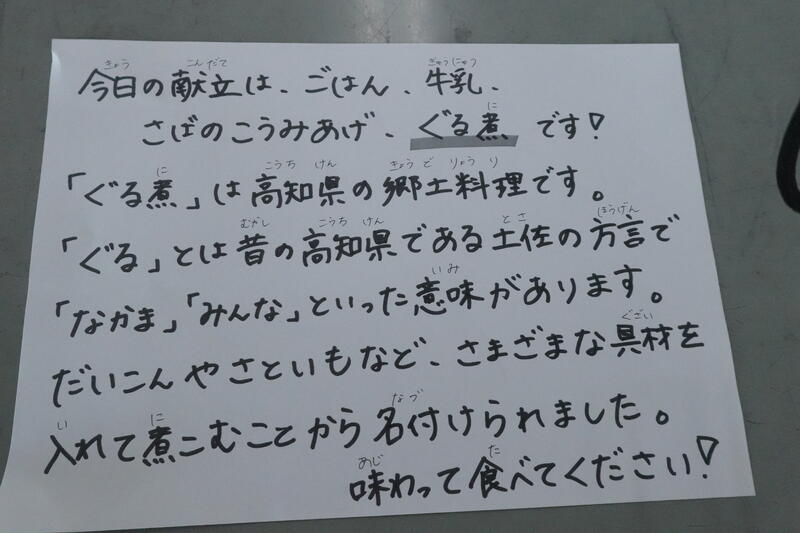 今日の献立は、ごはん、牛乳、
さばのこうみあげ、ぐる煮です!
「ぐる煮」は高知県の郷土料理です。
「ぐる」とは昔の高知県である土佐の方言で
「なかま」「みんな」といった意味があります。
だいこんやさといもなど、さまざまな具材を
入れて煮こむことから名付けられました。
味わって食べてください!